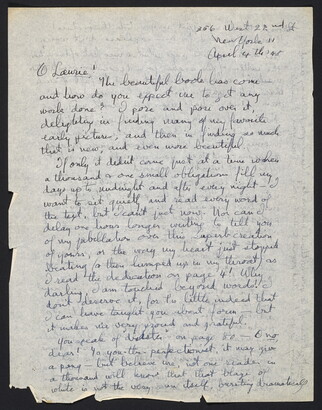 206 West 22nd St
New York 11
April 4th '45
O Laurie!
The beautiful book has come —
and how do you expect me to get any
work done? I pore and pore over it,
delighting in finding many of my favorite
early pictures, and then in finding so much
that is new, and even more beautiful.
If only it didn't come just at a time when
a thousand or one small obligations fill my
days up to midnight and after every night. I
want to sit quietly and read every word of
the text, but can't just now. Nor can I
delay one hour longer writing to tell you
of my jubilation over this superb creation
of yours, or the way my heart just stopped
beating & then bumped up in my throat, as
I read the dedication on page 4! Why
darling, I am touched beyond words! I
don't deserve it, for its little indeed that
I can have taught you about form — but
it makes me very proud and grateful.
You speak of "disaster" on page 80 — O no
dear! To you, the perfectionist, it may give
a pang — but believe me, not one reader in
a thousand will know that that blaze of
white is not the very sun itself, bursting dramatically